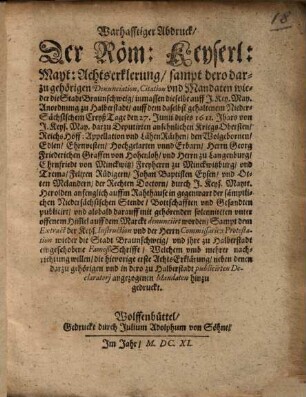 18
Warhafftiger Abdruck/
Der Röm: Keyserl:
Mayt: Achtserklerung/ sampt dero dar-
zu gehörigen Denunciation, Citation vnd Mandaten wie-
der die Stadt Braunschweig/ inmassen dieselbe auff J. Key. May.
Anordnung zu Halberstadt/ auff dem daselbst gehaltenem Nider-
Sächsischen Creyß Tage den 27. Junii dieses 1611. Jhars von
J. Keys. May. darzu Deputirten ansehnlichen Kriegs Obersten/
Reichs Hoff: Appellation vnd Lähen Räthen/ den Wolgebornen/
Edlen/ Ehrnvesten/ Hochgelarten vnnd Erbarn/ Herrn Georg
Friederichen Graffen von Hohenloh/ vnd Herrn zu Langenburg/
Ehrnfriedt von Minckwitz/ Freyherrn zu Minckwitzburg/ vnd
Trema/ Felizen Rüdigern/ Johan Baptisten Eysen/ vnd Die-
ten Melandern/ der Rechten Doctorn/ durch J. Keys. Mayt.
Herolden anfenglich auffm Rahthause in gegenwart der sämptli-
chen Nidersächsischen Stende/ Botschafften vnd Gesandten
publicirt/ vnd alsbald darauff mit gehörenden solenniteten vnter
offenem Himel auff dem Marckt denunciirt worden/ Sampt dem
Extract der Keys. Instruction vnd der Herrn Commissarien Protesta-
tion wieder die Stadt Braunschweig/ vnd ihre zu Halberstadt
eingeschobene Famoß Schriffte/ Welchem vnd mehrer nach-
richtung wollen/ die hievorige erste Achts Erklärung/ neben denen
darzu gehörigen vnd in dero zu Halberstadt publicirten De-
claratorj angezogenen Mandaten hinzu
gedruckt.
Wolffenbüttel/
Gedruckt durch Julium Adolphum von Söhne/
Im Jahr/ M. DC. XI.